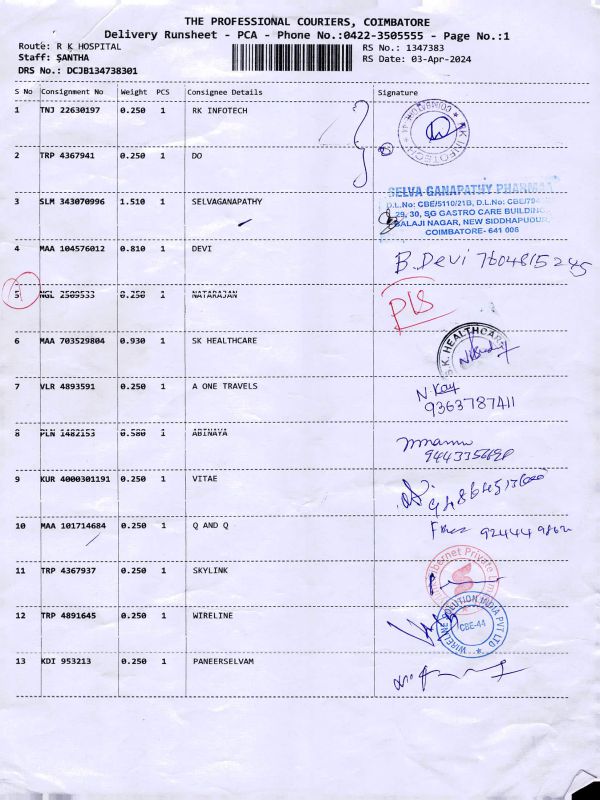 THE PROFESSIONAL COURIERS, COIMBATORE
Delivery Runsheet - PCA - Phone No.:0422-3505555 - Page No.:1
Route: R K HOSPITAL
Staff: SANTHA
DRS No.: DCJB134738301
RS No.: 1347383
RS Date: 03-Apr-2024
S No Consignment No Weight PCS Consignee Details Signature
1 TNJ 22630197 0.250 1 RK INFOTECH
RK INFOTECH COIMBATORE
2 TRP 4367941 0.250 1 DO
3 SLM 343070996 1.510 1 SELVAGANAPATHY
SELVA GANAPATHY PHARMA
D.L.No: CBE/5110/21B, D.L.No: CBE/
29, 30, SG GASTRO CARE BUILDING,
BALAJI NAGAR, NEW SIDDHAPUDUR,
COIMBATORE- 641 006
4 MAA 104576012 0.810 1 DEVI B. Devi 7604815245
5 NGL 2509533 0.250 1 NATARAJAN
6 MAA 703529804 0.930 1 SK HEALTHCARE
S.K. HEALTHCARE
7 VLR 4893591 0.250 1 A ONE TRAVELS
9363787411
8 PLN 1482153 0.580 1 ABINAYA
9 KUR 4000301191 0.250 1 VITAE
10 MAA 101714684 0.250 1 Q AND Q
11 TRP 4367937 0.250 1 SKYLINK
12 TRP 4891645 0.250 1 WIRELINE
WIRELINE SOLUTION INDIA PVT LTD
CBE-44
13 KDI 953213 0.250 1 PANEERSELVAM